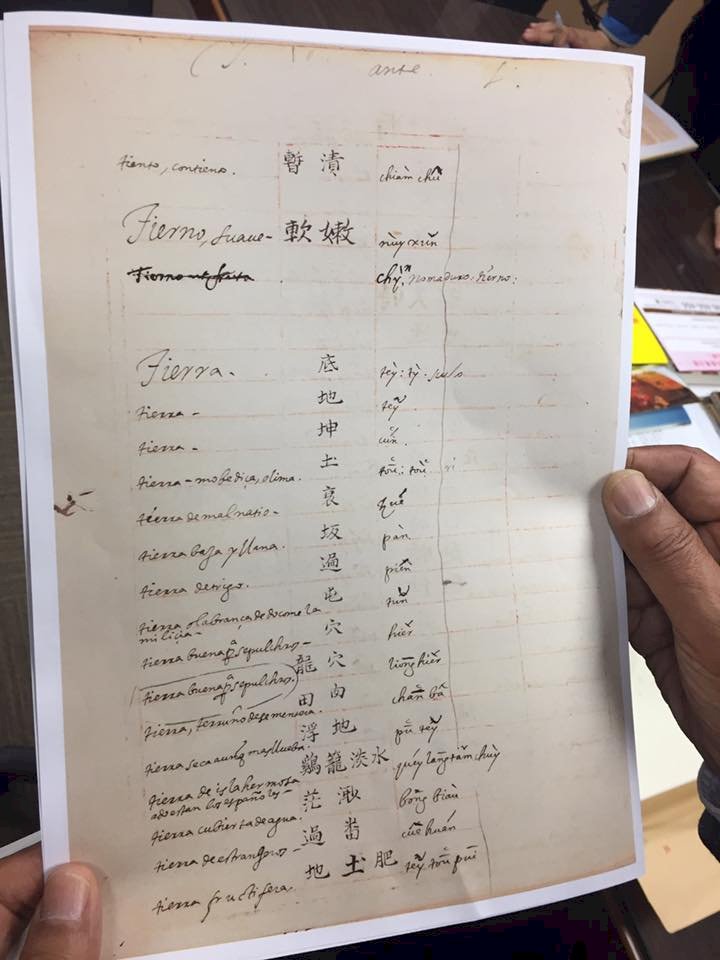 ante
tiento, contieno. 暫 漬 chiàm
Tierno, suave- 軟 嫩 nùy xùn
nomaduro. tierno:
Tierra. 底 tèy: tỳ. suelo
tierra- 地 tẽy
tierra- 坤 cūn.
tierra-mobediça, o lima. 土
tierra de mal natio- 裒
tierra baja y llana. 坂 pàn
tierra de trigo. 過
tierra o labrança de do come la milicia- 屯 tūn
tierra buena pa sepulchro- 穴 hiẽr
tierra buena pa sepulchro. 龍 穴 liông hiẽr
tierra, terruño de sementera. 田 chân bã
tierra seca aunq mas llueba. 浮 地 pû tẽy
tierra de isla hermosa adoestan los españoles- 鷄 籠 淡 水 quéy lâng tãm chùy
tierra cubierta de agua. 茫 bông biàu
tierra de estrangeros- 過 番 cùe huán
tierra fructifera. 地 土 肥 tẽy tòu pûi